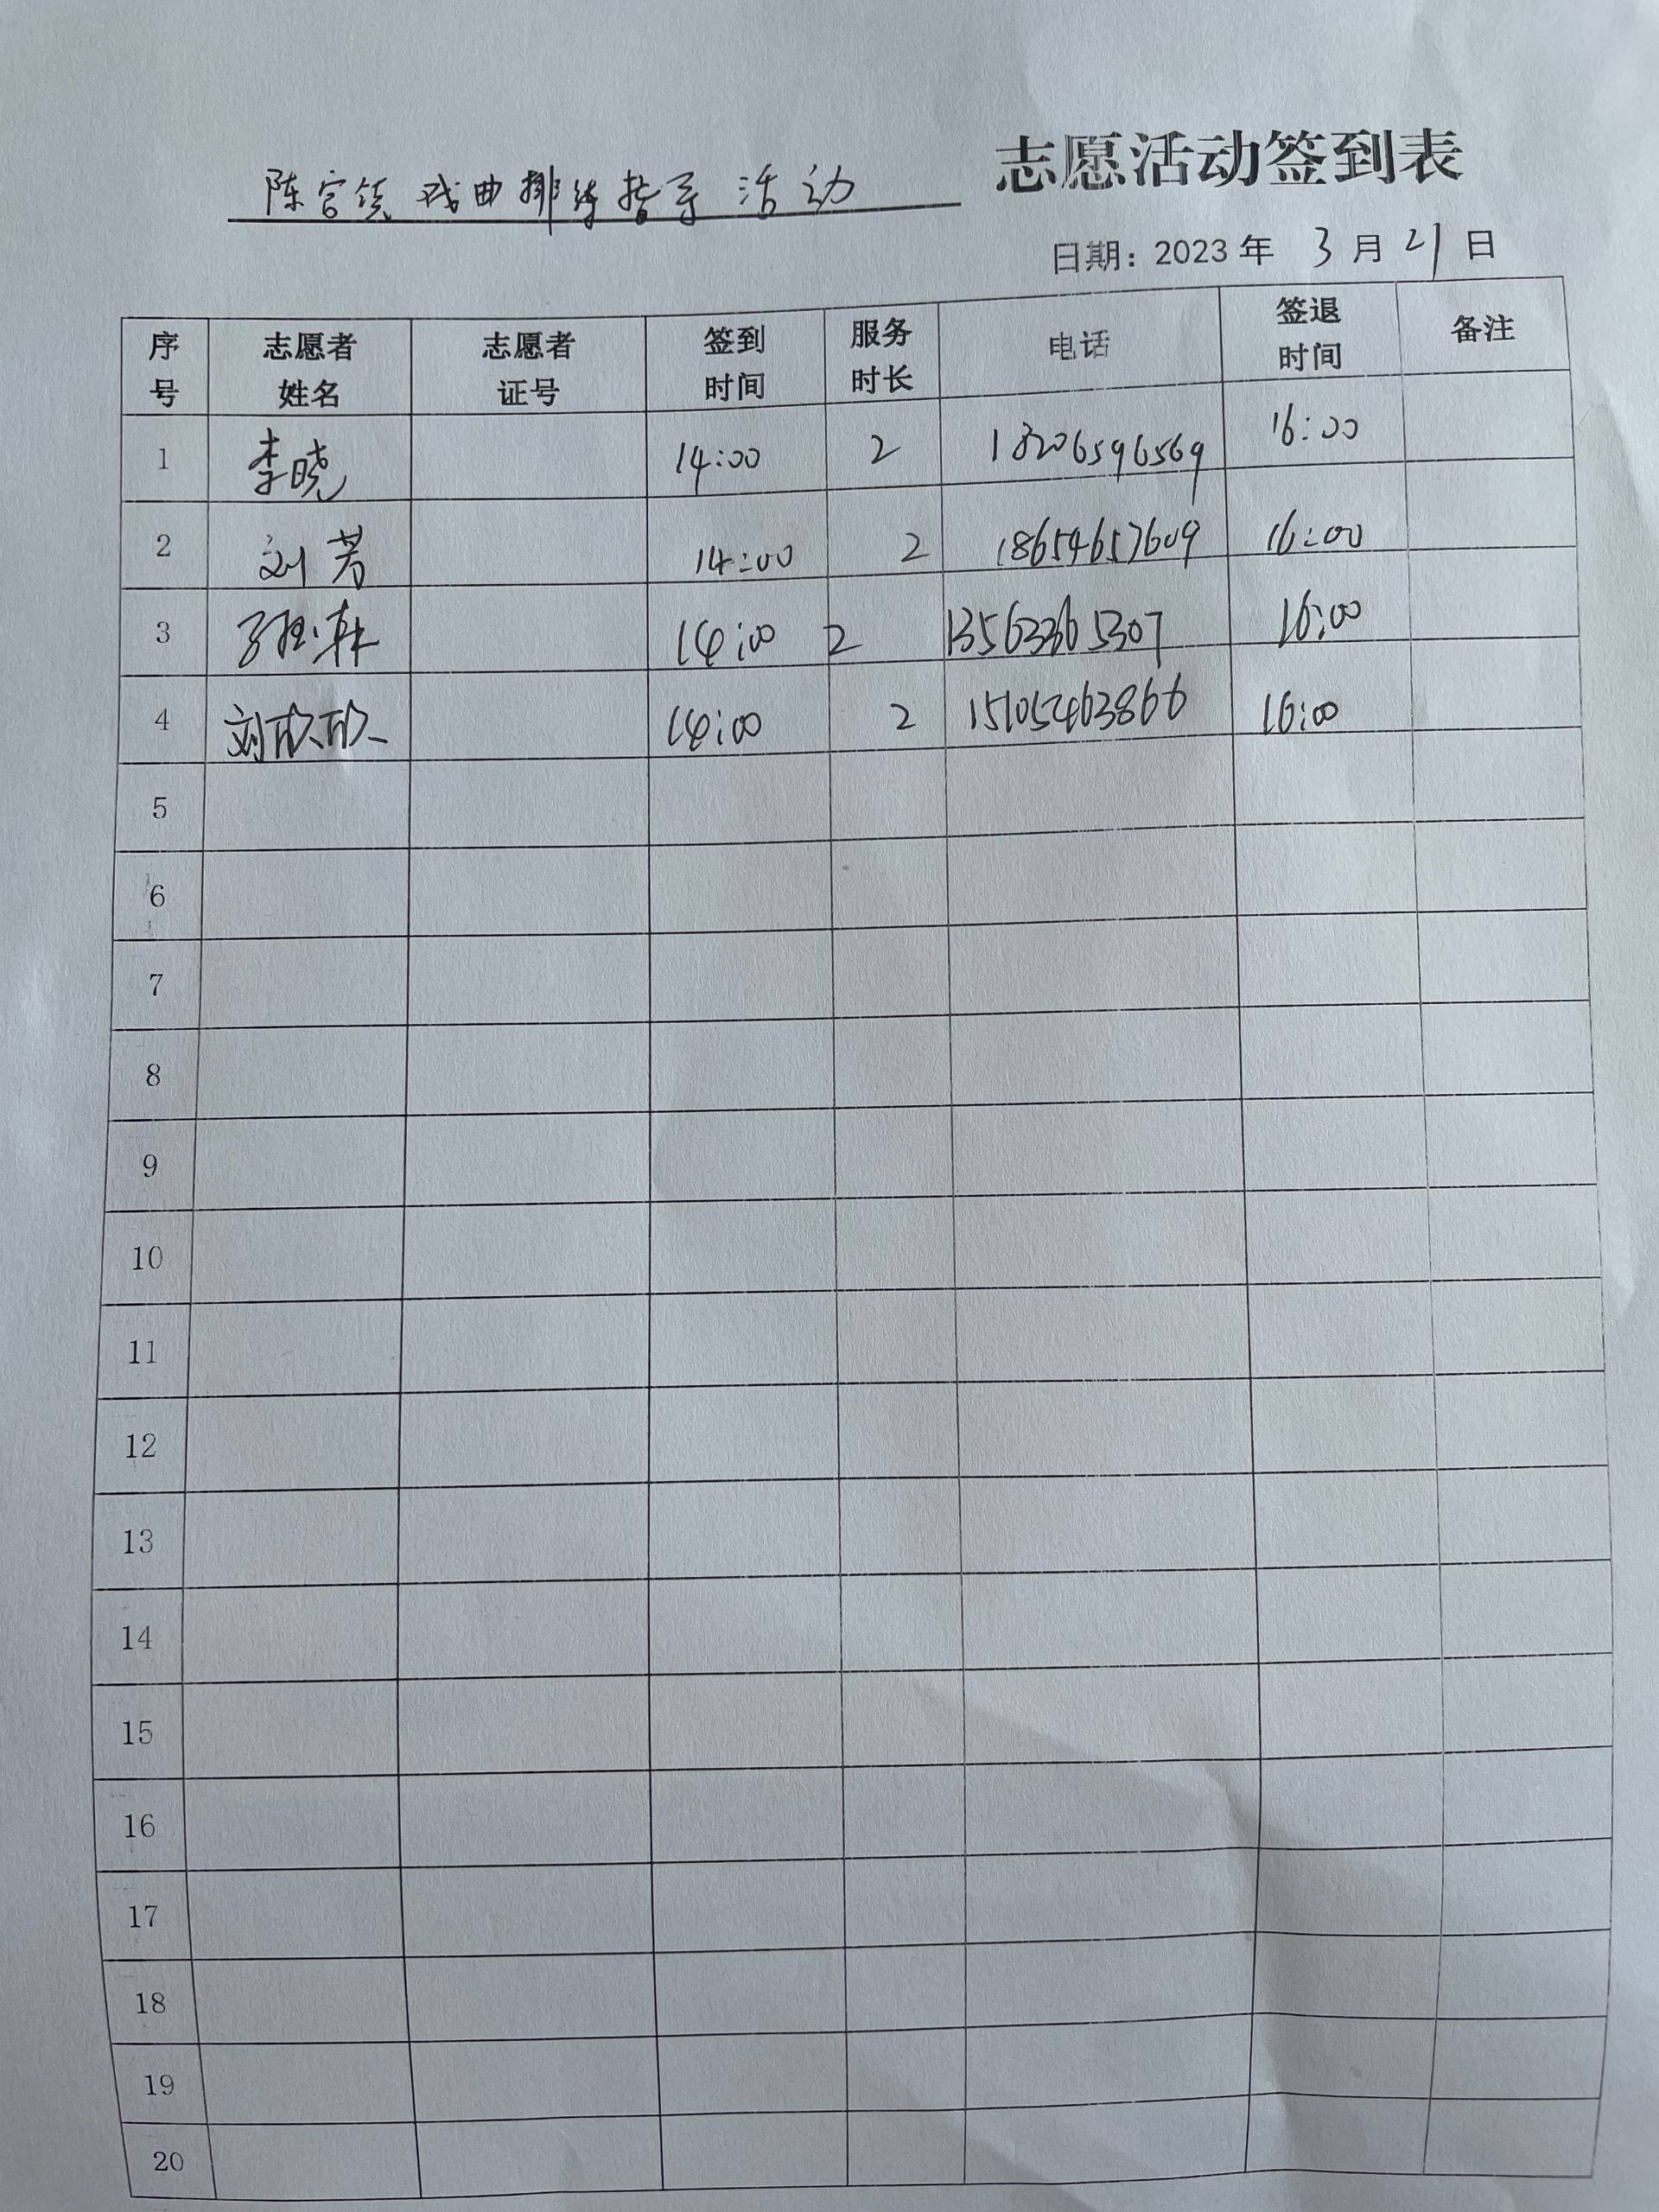 志愿活动签到表
陈官领 戏曲排练指导 活动
日期：2023 年 3 月 21 日
序号 志愿者姓名 志愿者证号 签到时间 服务时长 电话 签退时间 备注
1 李晓 14:00 2 18206596569 16:00
2 刘芳 14:00 2 18654657609 16:00
3 14:00 2 13563365307 16:00
4 刘欣欣 14:00 2 15105463866 16:00
5
6
7
8
9
10
11
12
13
14
15
16
17
18
19
20